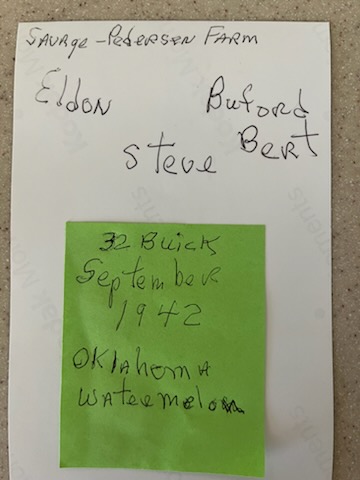 Savage-Pedersen Farm
Eldon Buford
Steve Bert
32 Buick
September
1942
Oklahoma
Watermelon